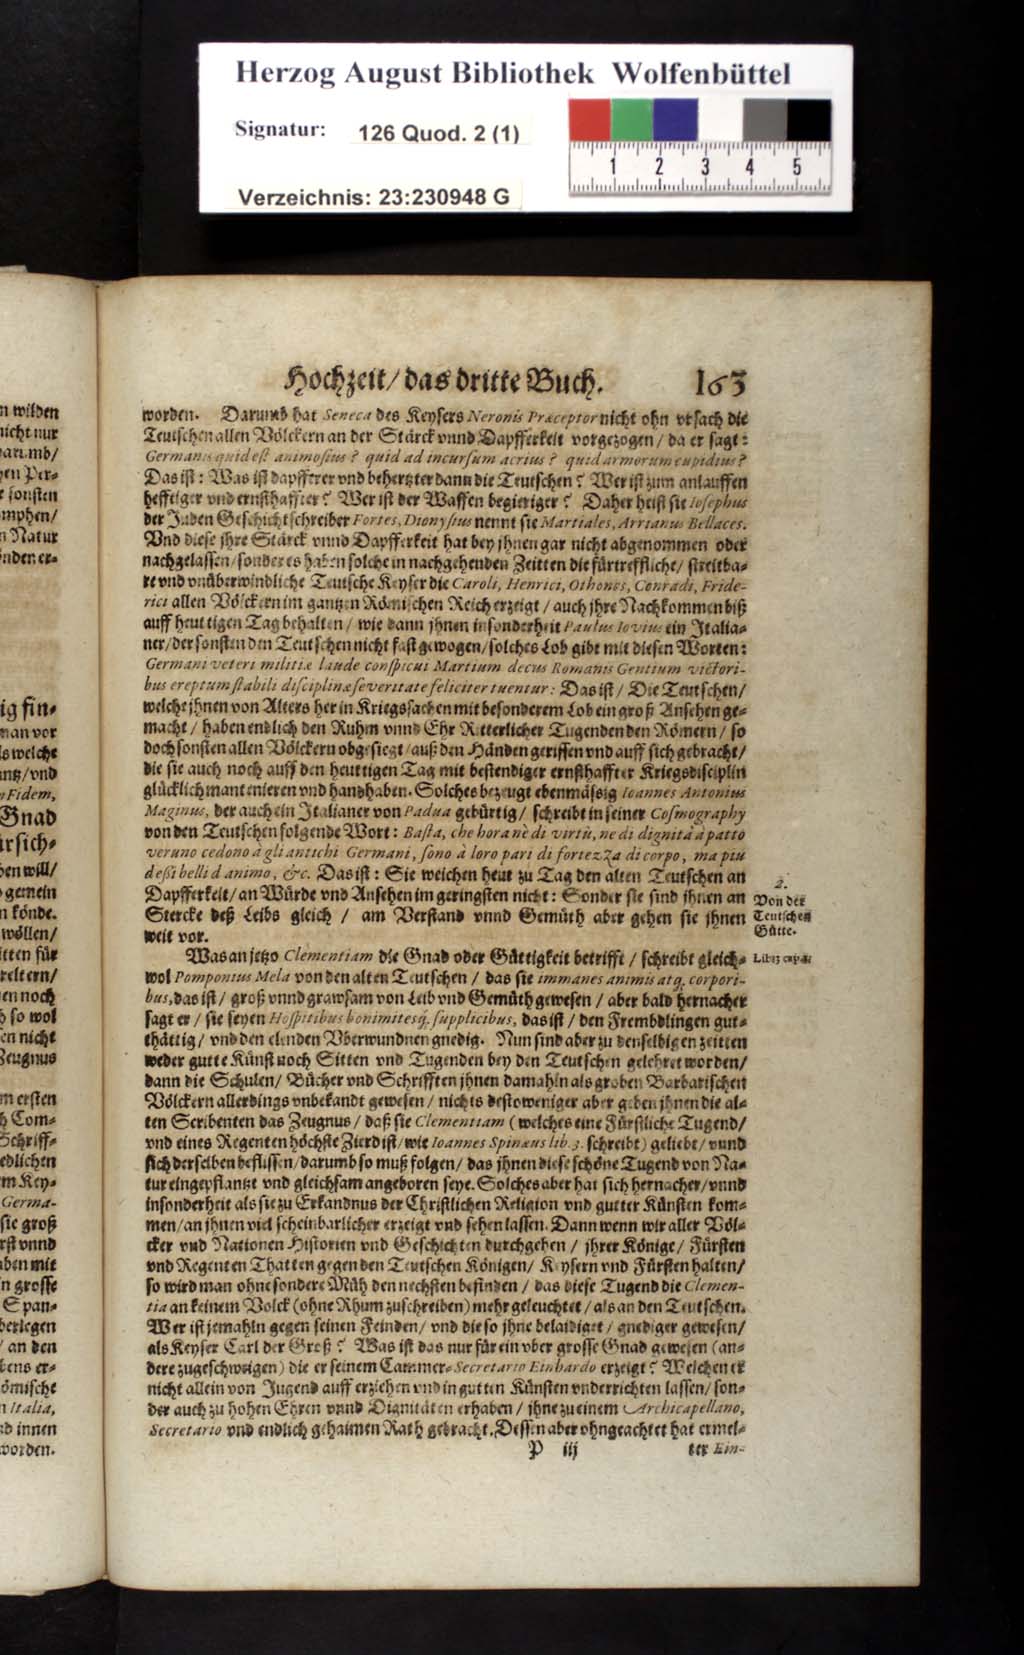 Herzog August Bibliothek Wolfenbüttel
Signatur: 126 Quod. 2 (1)
Verzeichnis: 23:230948 G
1 2 3 4 5
Hochzeit/ das dritte Buch. 163
worden. Darumb hat Seneca des Keysers Neronis Præceptor nicht ohn vrsach die
Teutschen allen Völckern an der Stärck vnnd Dapfferkeit vorgezogen/ da er sagt:
Germanis quid est animosius? quid ad incursum acrius? quid armorum cupidius?
Das ist: Was ist dapfferer vnd behertzter dann die Teutschen? Wer ist zum anlauffen
hefftiger vnd ernsthaffter? Wer ist der Waffen begieriger? Daher heist sie Iosephus
der Juden Geschichtschreiber Fortes, Dionysius nennt sie Martiales, Arrianus Bellaces.
Vnd diese jhre Stärck vnnd Dapfferkeit hat bey jhnen gar nicht abgenommen oder
nachgelassen/ sonder es haben solche in nachgehenden Zeitten die fürtreffliche/ streitba-
re vnd vnüberwindliche Teutsche Keyser die Caroli, Henrici, Othones, Conradi, Fride-
rici allen Völckern im gantzen Römischen Reich erzeigt/ auch jhre Nachkommen biß
auff heuttigen Tag behalten/ wie dann jhnen insonderheit Paulus Iovius ein Italia-
ner/ der sonsten den Teutschen nicht fast gewogen/ solches Lob gibt mit diesen Worten:
Germani veteri militiæ laude conspicui Martium decus Romanis Gentium victori-
bus ereptum stabili disciplinæ severitate feliciter tuentur: Das ist/ Die Teutschen/
welche jhnen von Alters her in Kriegssachen mit besonderem Lob ein groß Ansehen ge-
macht/ haben endlich den Ruhm vnnd Ehr Ritterlicher Tugenden den Römern/ so
doch sonsten allen Völckern obgesiegt/ auß den Händen gerissen vnd auff sich gebracht/
die sie auch noch auff den heuttigen Tag mit bestendiger ernsthaffter Kriegsdisciplin
glücklich mantenieren vnd handhaben. Solches bezeugt ebenmässig Ioannes Antonius
Maginus, der auch ein Italianer von Padua gebürtig/ schreibt in seiner Cosmography
von den Teutschen folgende Wort: Basta, che hora nè di virtù, ne di dignità à patto
veruno cedono à gli antichi Germani, sono à loro pari di fortezza di corpo, ma piu
deßi belli d animo, &c. Das ist: Sie weichen heut zu Tag den alten Teutschen an
Dapfferkeit/ an Würde vnd Ansehen im geringsten nicht: Sonder sie sind jhnen an
Stercke deß Leibs gleich/ am Verstand vnnd Gemüth aber gehen sie jhnen
weit vor.
2.
Von der
Teutschen
Gütte.
Was an jetzo Clementiam die Gnad oder Güttigkeit betrifft/ schreibt gleich-
wol Pomponius Mela von den alten Teutschen/ das sie immanes animis atq; corpori-
bus, das ist/ groß vnnd grawsam von Leib vnd Gemüth gewesen/ aber bald hernacher
sagt er/ sie seyen Hospitibus boni mitesq; supplicibus, das ist/ den Frembdlingen gut-
thättig/ vnd den elenden Vberwundnen gnedig. Nun sind aber zu denselbigen zeitten
weder gutte Künst noch Sitten vnd Tugenden bey den Teutschen gelehret worden/
dann die Schulen/ Bücher vnd Schrifften jhnen damahln als groben Barbarischen
Völckern allerdings vnbekandt gewesen/ nichts destoweniger aber geben jhnen die al-
ten Scribenten das Zeugnus/ daß sie Clementiam (welches eine Fürstliche Tugend/
vnd eines Regenten höchste Zierd ist/ wie Ioannes Spinæus lib. 3. schreibt) geliebt/ vnnd
sich derselben beflissen/ darumb so muß folgen/ das jhnen diese schöne Tugend von Na-
tur eingepflantzt vnd gleichsam angeboren seye. Solches aber hat sich hernacher/ vnnd
insonderheit als sie zu Erkandnus der Christlichen Religion vnd gutter Künsten kom-
men/ an jhnen viel scheinbarlicher erzeigt vnd sehen lassen. Dann wenn wir aller Völ-
cker vnd Nationen Historien vnd Geschichten durchgehen/ jhrer Könige/ Fürsten
vnd Regenten Thatten gegen den Teutschen Königen/ Keysern vnd Fürsten halten/
so wird man ohne sondere Müh den nechsten befinden/ das diese Tugend die Clemen-
tia an keinem Volck (ohne Rhum zuschreiben) mehr geleuchtet/ als an den Teutschen.
Wer ist jemahln gegen seinen Feinden/ vnd die so jhne belaidiget/ gnediger gewesen/
als Keyser Carl der Groß? Was ist das nur für ein vber grosse Gnad gewesen (an-
dere zugeschweigen) die er seinem Cammer-Secretario Einhardo erzeigt? Welchen er
nicht allein von Jugend auff erziehen vnd in gutten Künsten vnderrichten lassen/ son-
der auch zu hohen Ehren vnnd Dignitäten erhaben/ jhne zu einem Archicapellano,
Secretario vnd endlich gehaimen Rath gebracht. Dessen aber ohngeachtet hat ermel-
P iij ter Ein-